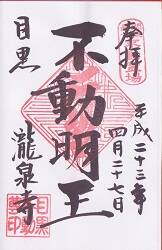 奉拝
平成二十三年
四月二十七日
不動明王
目黒
瀧泉寺